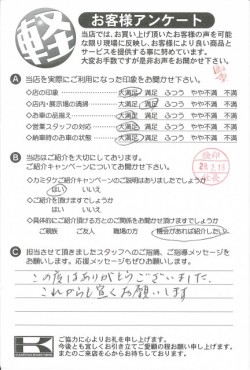 軽
お客様アンケート
当店では、お買い上げ頂いたお客様の声を可能
な限り現場に反映し、お客様により良い商品と
サービスを提供する事に努めています。
大変お手数ですが是非お声をお聞かせ下さい。
A 当店を実際にご利用になった印象をお聞かせ下さい。
◇店の印象 大満足 満足 ふつう やや不満 不満
◇店内・展示場の清掃 大満足 満足 ふつう やや不満 不満
◇お車の品揃え 大満足 満足 ふつう やや不満 不満
◇営業スタッフの対応 大満足 満足 ふつう やや不満 不満
◇納車時のお車の状態 大満足 満足 ふつう やや不満 不満
B 当店はご紹介を大切にしております。
ご紹介キャンペーンについてお聞かせ下さい。
◇カミタケご紹介キャンペーンのご説明はありましたでしょうか
はい いいえ
◇ご紹介を頂けますでしょうか
はい いいえ
◇具体的にご紹介頂ける方との関係をお聞かせ頂けますでしょうか
ご親族 ご友人 職場の方 機会があれば紹介したい
C 担当させて頂きましたスタッフへのご指摘、ご指導メッセージを
お願いします。応援メッセージもぜひお願いします。
この度はありがとうございました
これからも宜くお願いします
K
ご協力に心よりお礼を申し上げます。
今後とも宜しくお引き立てご愛顧の程お願い申し上げます。
またのご来店を心からお待ちしております。